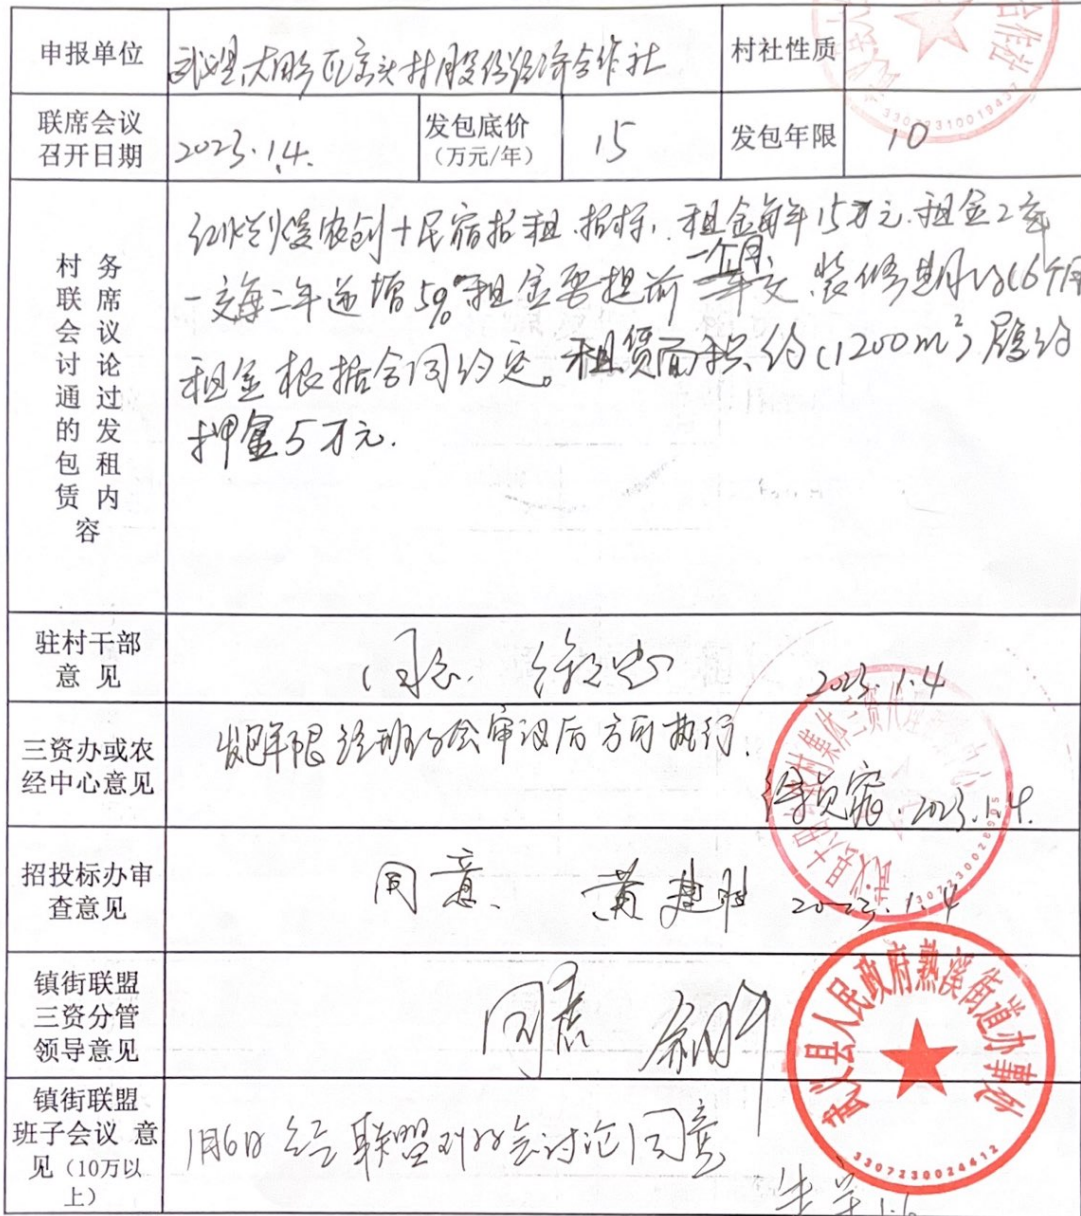 申报单位 武义县大田乡 村股份经济合作社 村社性质
联席会议召开日期 2023.1.4. 发包底价(万元/年) 15 发包年限 10
村务联席会议讨论通过的发包租赁内容
农创+民宿招租.招标,租金每年15万元.租金2年
一交每二年递增5%租金要提前一个月交.装修期为(6个月
租金根据合同约定。租赁面积约(1200m²)履约
押金5万元.
驻村干部意见 同意. 2023.1.4
三资办或农经中心意见 发包年限经班子会审议后方可执行.
2023.1.4.
招投标办审查意见 同意、 黄建胜 2023.1.4
镇街联盟三资分管领导意见 同意
镇街联盟班子会议 意见(10万以上) 1月6日 经联盟班子会讨论同意
1.6
33072310019437
武义县人民政府熟溪街道办事处
3307230024412